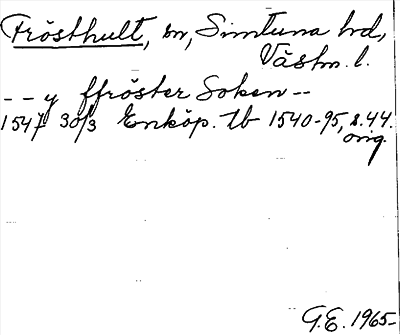 Frösthult, sn, Simtuna hd,
Västm. l.
-- y ffröster Soken --
1547 30/3 Enköp. tb 1540-95, s. 44.
orig.
G.E. 1965-